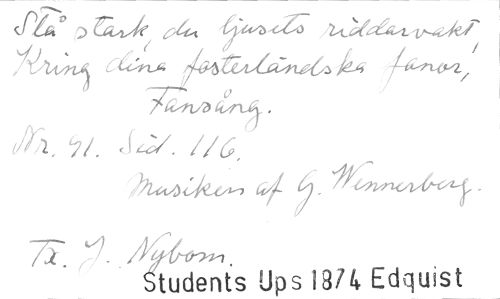 Stå stark, du ljusets riddarvakt,
Kring dina fosterländska fanor,
Fansång.
Nr. 91. Sid. 116.
Musiken af G. Wennerberg.
Tx. J. Nybom.
Students Ups 1874 Edquist